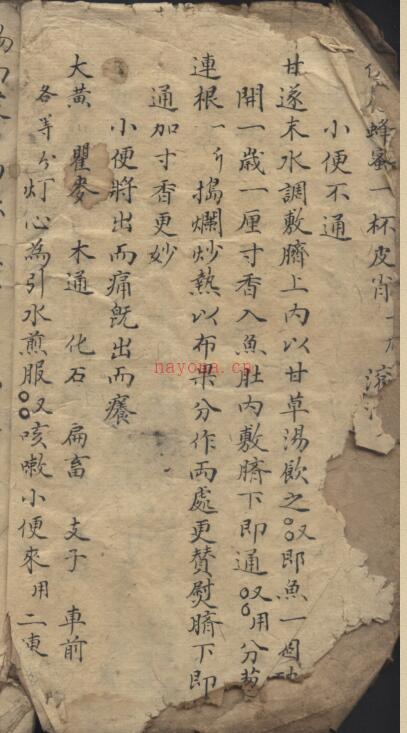 蜂蜜一杯皮肖一
小便不通
甘遂末水調敷臍上内以甘草湯飲之又即魚一個
開一歲一厘寸香入魚肚内敷臍下即通又用分葱
連根一斤搗爛炒熱以布裹分作両處更賛熨臍下即
通加寸香更妙
小便將出而痛旣出而癢
大黄 瞿麥 木通 化石 扁畜 支子 車前
各等分灯心為引水煎服又咳嗽小便來用二東
nayona.cn